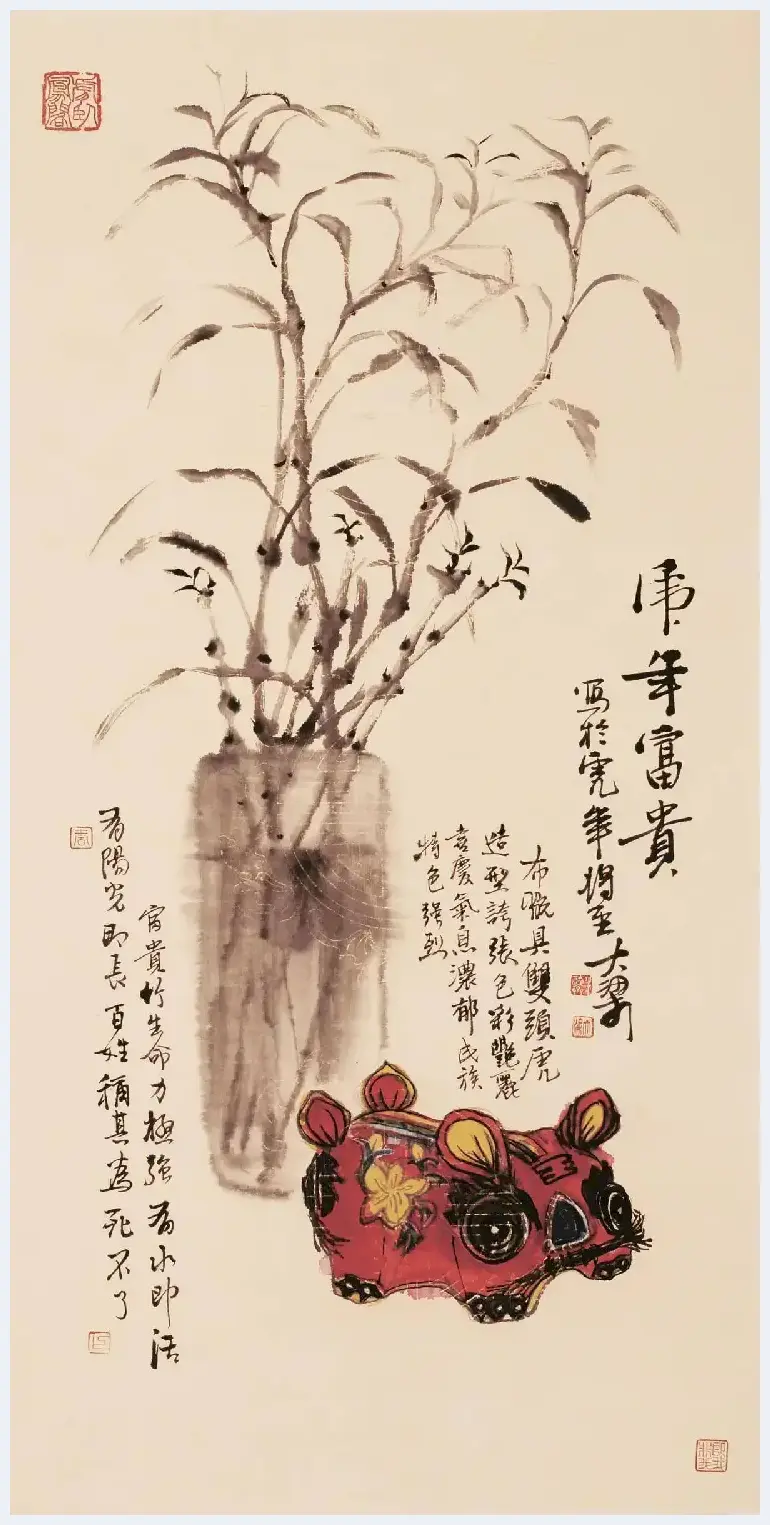 虎年富貴
寫於虎年將至大翠
布玩具雙頭虎
造型誇張色彩艷麗
喜慶氣息濃郁民族
特色强烈
富貴竹生命力極強有水即活
有陽光即長百姓稱其為死不了